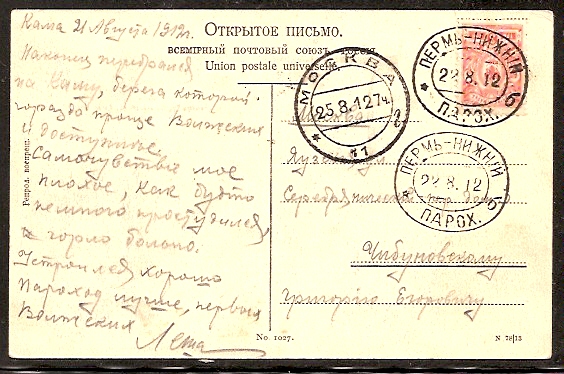 Кама 21 Августа 1912г.
Наконец перебрался
на Каму, берега которой
гораздо проще Волжских
и доступнее.
Самочувствие мое
плохое, как будто
немного простудился,
горло больно.
Устроился хорошо
Пароход лучше, первых
Волжских
Леша
ОТКРЫТОЕ ПИСЬМО.
ВСЕМІРНЫЙ ПОЧТОВЫЙ СОЮЗЪ. РОССІЯ.
Union postale universelle.
МОСКВА
25.8.12 7ч.
* 11 *
ПЕРМЬ-НИЖНІЙ
22 8. 12
* ПАРОХ. Б
ПЕРМЬ-НИЖНІЙ
22 8. 12
* ПАРОХ. Б
Москва
Чибуновскому
Григорію Егоровичу
Репрод. воспрещ.
No 1027.
N 78|13